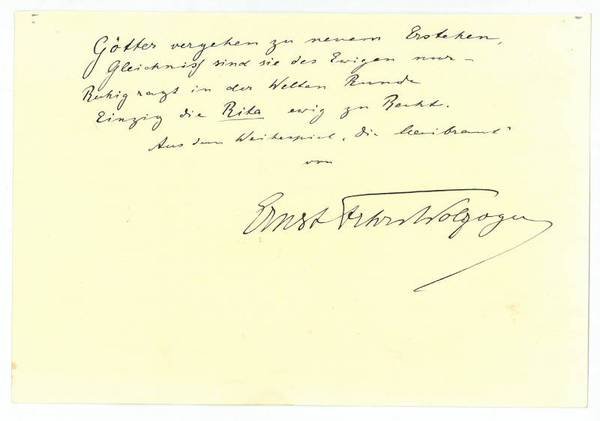 Götter vergehen zu neuem Erstehen,
Gleichniss sind sie des Ewigen nur –
Ruhig ragt in der Welten Runde
Einzig die Rita ewig zu Recht.
Aus dem Weihespiel „Die Maibraut“
von
Ernst Frhr v Wolzogen